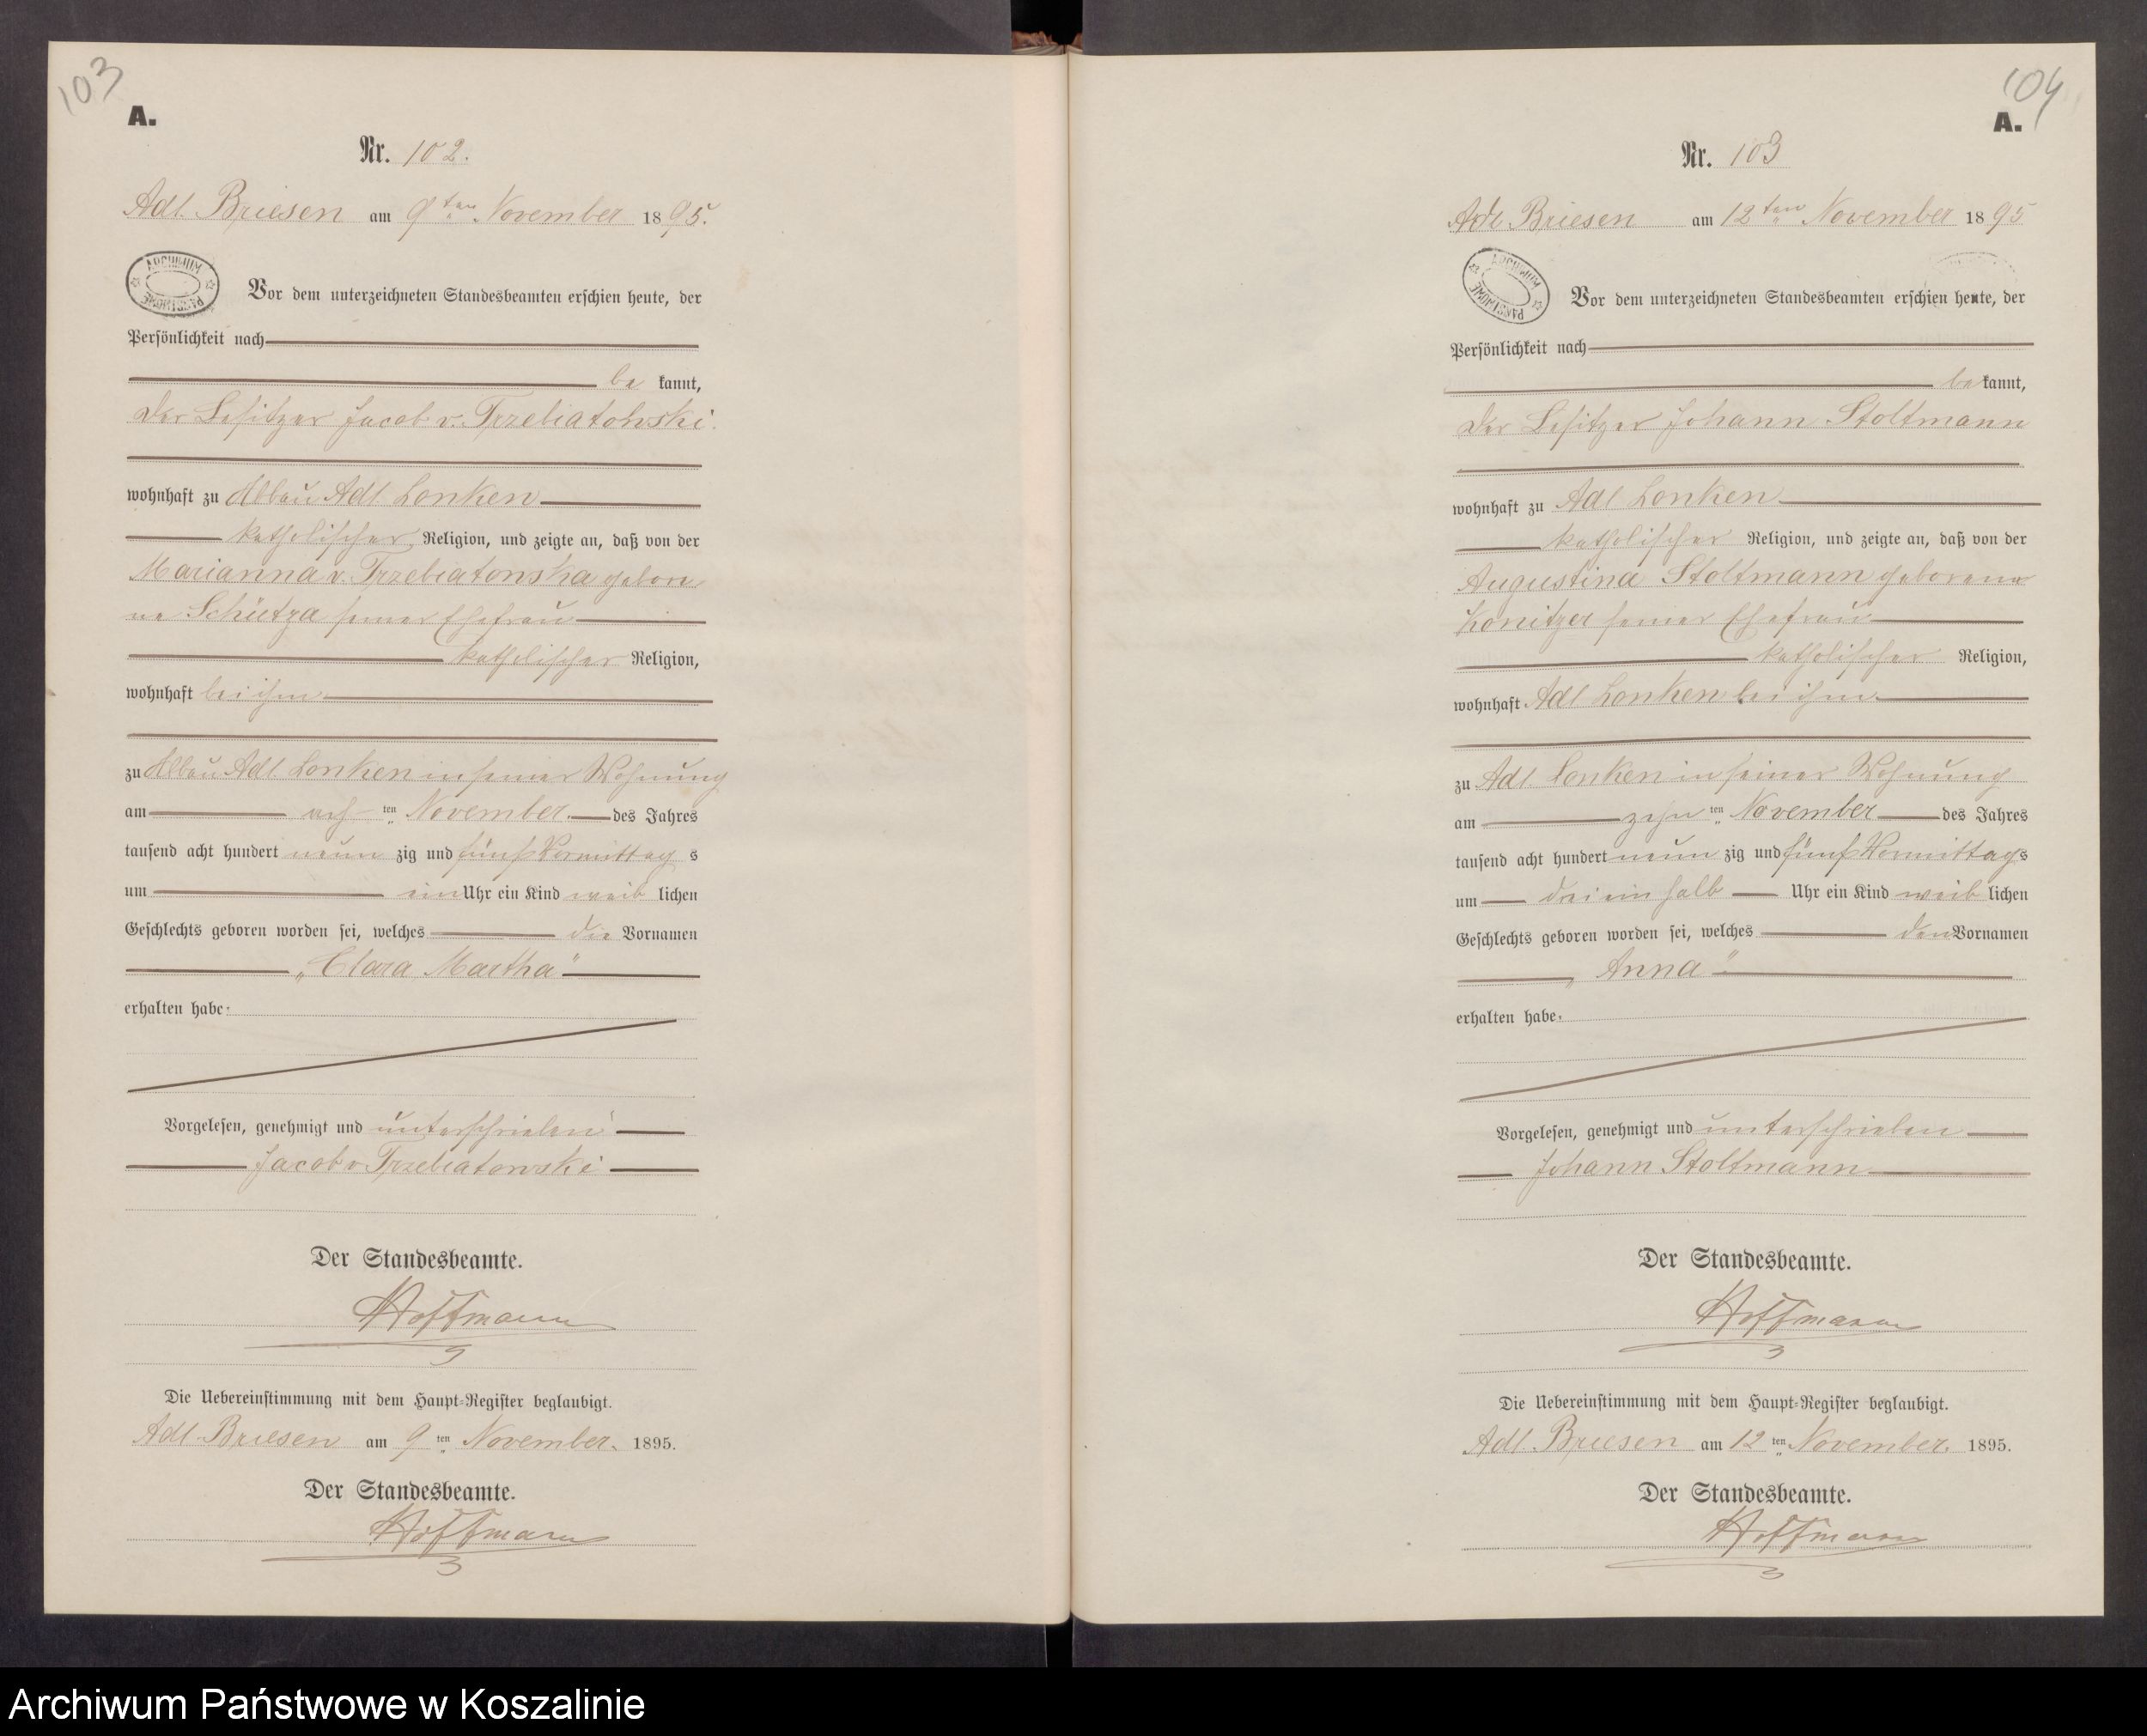 103
A.
Nr. 102.
Adl. Briesen am 9ten November 1895.
ARCHIWUM PAŃSTWOWE
Vor dem unterzeichneten Standesbeamten erschien heute, der
Persönlichkeit nach
be kannt,
der Besitzer Jacob v. Trzebiatowski
wohnhaft zu Abbau Adl. Lonken
katholischer Religion, und zeigte an, daß von der
Marianna v. Trzebiatowska gebore
ne Schütza seiner Ehefrau
katholischer Religion,
wohnhaft bei ihm
zu Abbau Adl. Lonken in seiner Wohnung
am ach ten November des Jahres
tausend acht hundert neun zig und fünf Vormittag s
um ein Uhr ein Kind weib lichen
Geschlechts geboren worden sei, welches die Vornamen
„Clara Martha“
erhalten habe.
Vorgelesen, genehmigt und unterschrieben
Jacob v Trzebiatowski
Der Standesbeamte.
Hoffmann
Die Uebereinstimmung mit dem Haupt-Register beglaubigt.
Adl. Briesen am 9 ten November. 1895.
Der Standesbeamte.
Hoffmann
104
A.
Nr. 103
Adl. Briesen am 12ten November 1895
ARCHIWUM PAŃSTWOWE
Vor dem unterzeichneten Standesbeamten erschien heute, der
Persönlichkeit nach
be kannt,
der Besitzer Johann Stoltmann
wohnhaft zu Adl Lonken
katholischer Religion, und zeigte an, daß von der
Augustina Stoltmann geborene
Konitzer seiner Ehefrau
katholischer Religion,
wohnhaft Adl Lonken bei ihm
zu Adl. Lonken in seiner Wohnung
am zehn ten November des Jahres
tausend acht hundert neun zig und fünf Vormittags
um drei ein halb Uhr ein Kind weib lichen
Geschlechts geboren worden sei, welches den Vornamen
„Anna“
erhalten habe.
Vorgelesen, genehmigt und unterschrieben
Johann Stoltmann
Der Standesbeamte.
Hoffmann
Die Uebereinstimmung mit dem Haupt-Register beglaubigt.
Adl. Briesen am 12 ten November. 1895.
Der Standesbeamte.
Hoffmann
Archiwum Państwowe w Koszalinie